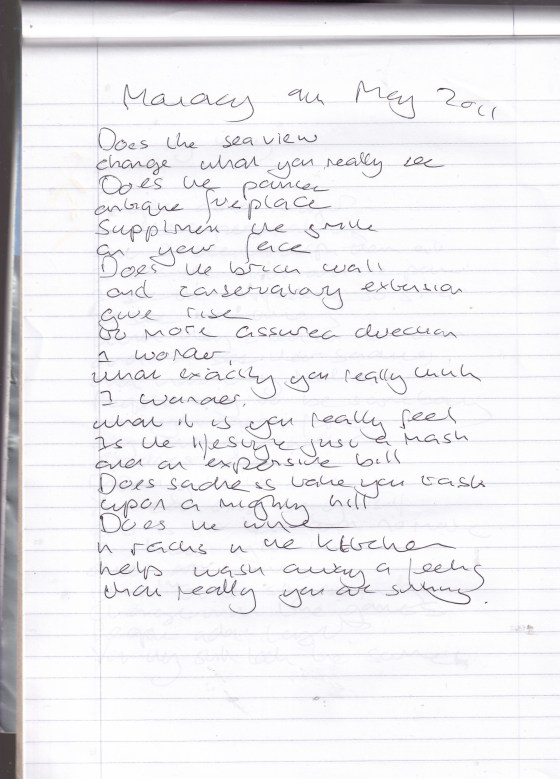 Monday 9th May 2011
Does the sea view
change what you really see
Does the painted
antique fireplace
Supplment the smile
on your face
Does the brick wall
and conservatory extension
give rise
to more assured direction
I wonder,
what exactly you really think
I wonder,
what it is you really feel
Is the lifestyle just a mask
and an expensive bill
Does sadness have you
upon a mighty hill
Does the wine
in racks in the kitchen
helps wash away a feeling
that really you are